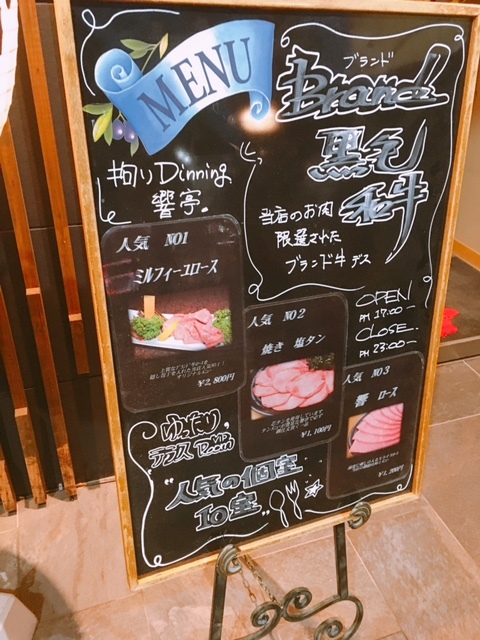 MENU
ブランド
Brand
黒毛
和牛
拘り Dinning
響亭.
当店のお肉
限選された
ブランド牛 デス
人気 NO1
ミルフィーユロース
¥2,800円
人気 NO2
焼き 塩タン
¥1,100円
OPEN
PM 17:00
CLOSE
PM 23:00
人気 NO3
響 ロース
¥1,200円
ゆったり
テラス
Room
"人気の個室
10室"